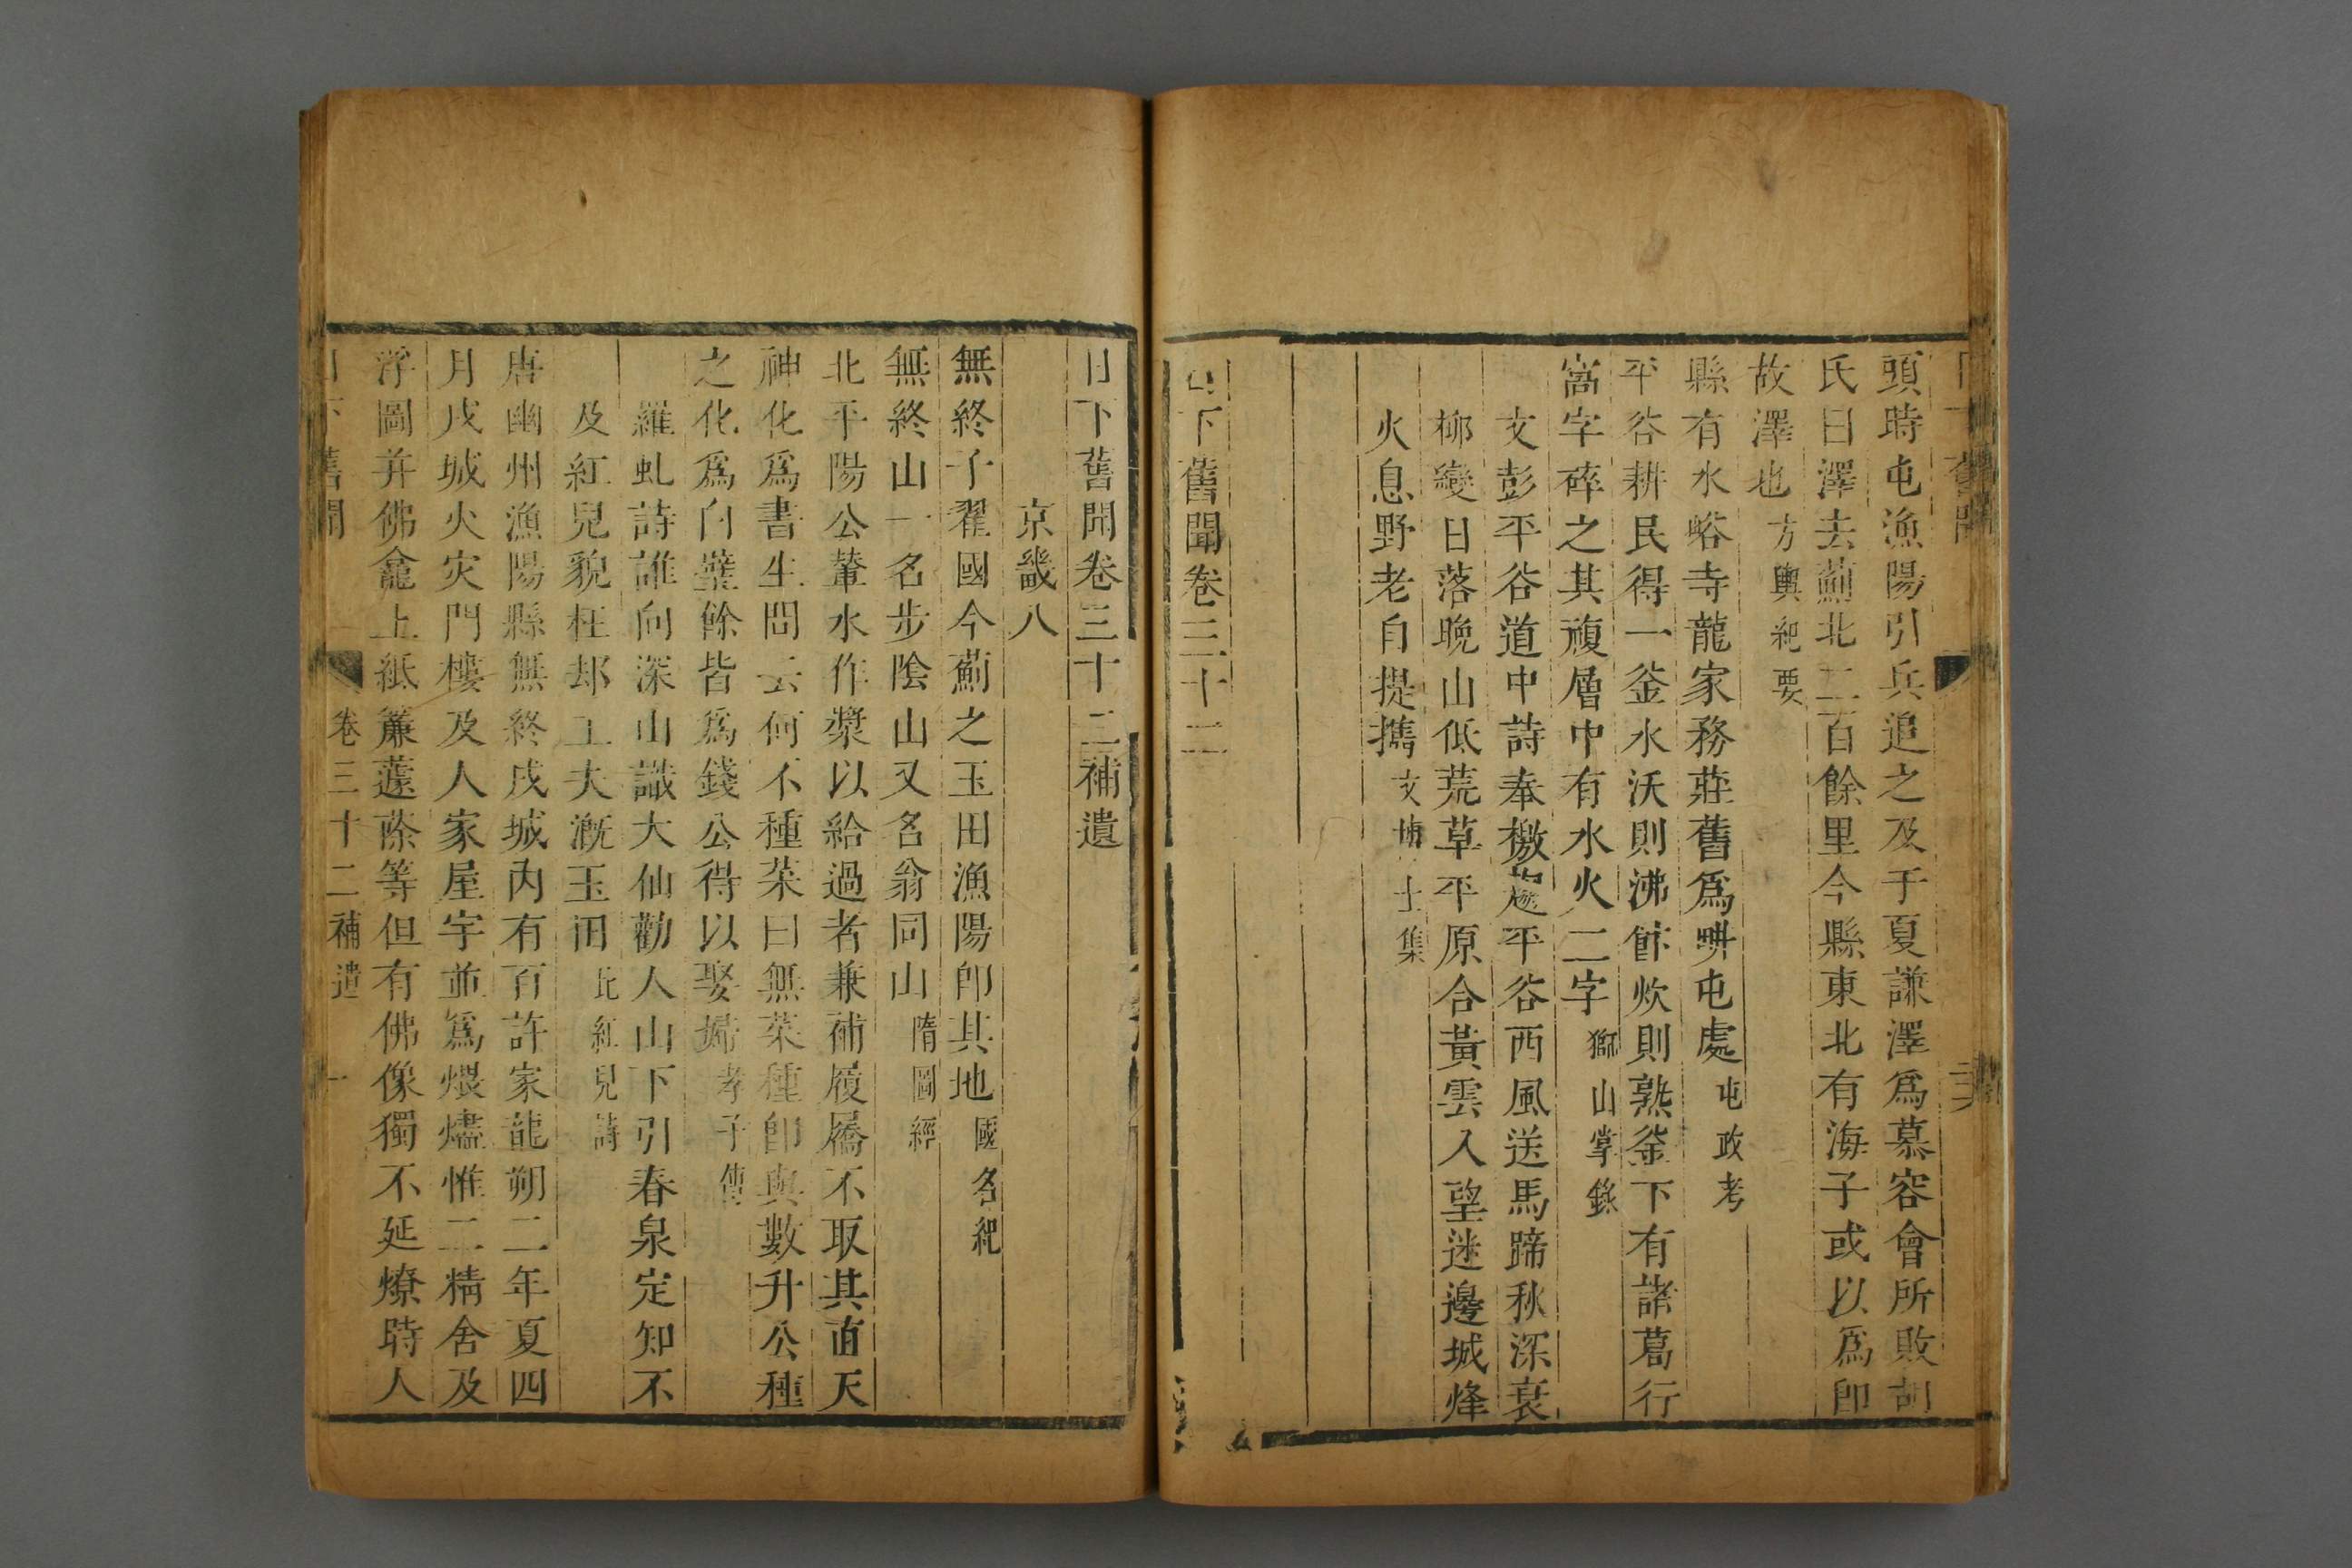 頭時屯漁陽引兵追之及于夏謙澤爲慕容會所敗胡
氏曰澤去薊北二百餘里今縣東北有海子或以爲卽
故澤也方輿紀要
縣有水峪寺龍家務莊舊爲畊屯處屯政考
平谷耕民得一釜水沃則沸餙炊則熟釜下有諸葛行
窩字碎之其複層中有水火二字獅山掌錄
文彭平谷道中詩奉檄趍平谷西風送馬蹄秋深衰
柳變日落晚山低荒草平原合黃雲入望迷邊城烽
火息野老自提攜文博士集
日下舊聞卷三十二
日下舊聞卷三十二補遺
京畿八
無終子翟國今薊之玉田漁陽卽其地國名紀
無終山一名步陰山又名翁同山隋圖經
北平陽公輦水作漿以給過者兼補履屩不取其直天
神化爲書生問云何不種菜曰無菜種卽與數升公種
之化爲白璧餘皆爲錢公得以娶婦孝子傳
羅虬詩誰向深山識大仙勸人山下引春泉定知不
及紅兒貌枉却工夫漑玉田比紅兒詩
唐幽州漁陽縣無終戍城內有百許家龍朔二年夏四
月戍城火灾門樓及人家屋宇並爲煨燼惟二精舍及
浮圖并佛龕上紙簾蘧蒢等但有佛像獨不延燎時人
日下舊聞 卷三十二補遺 一